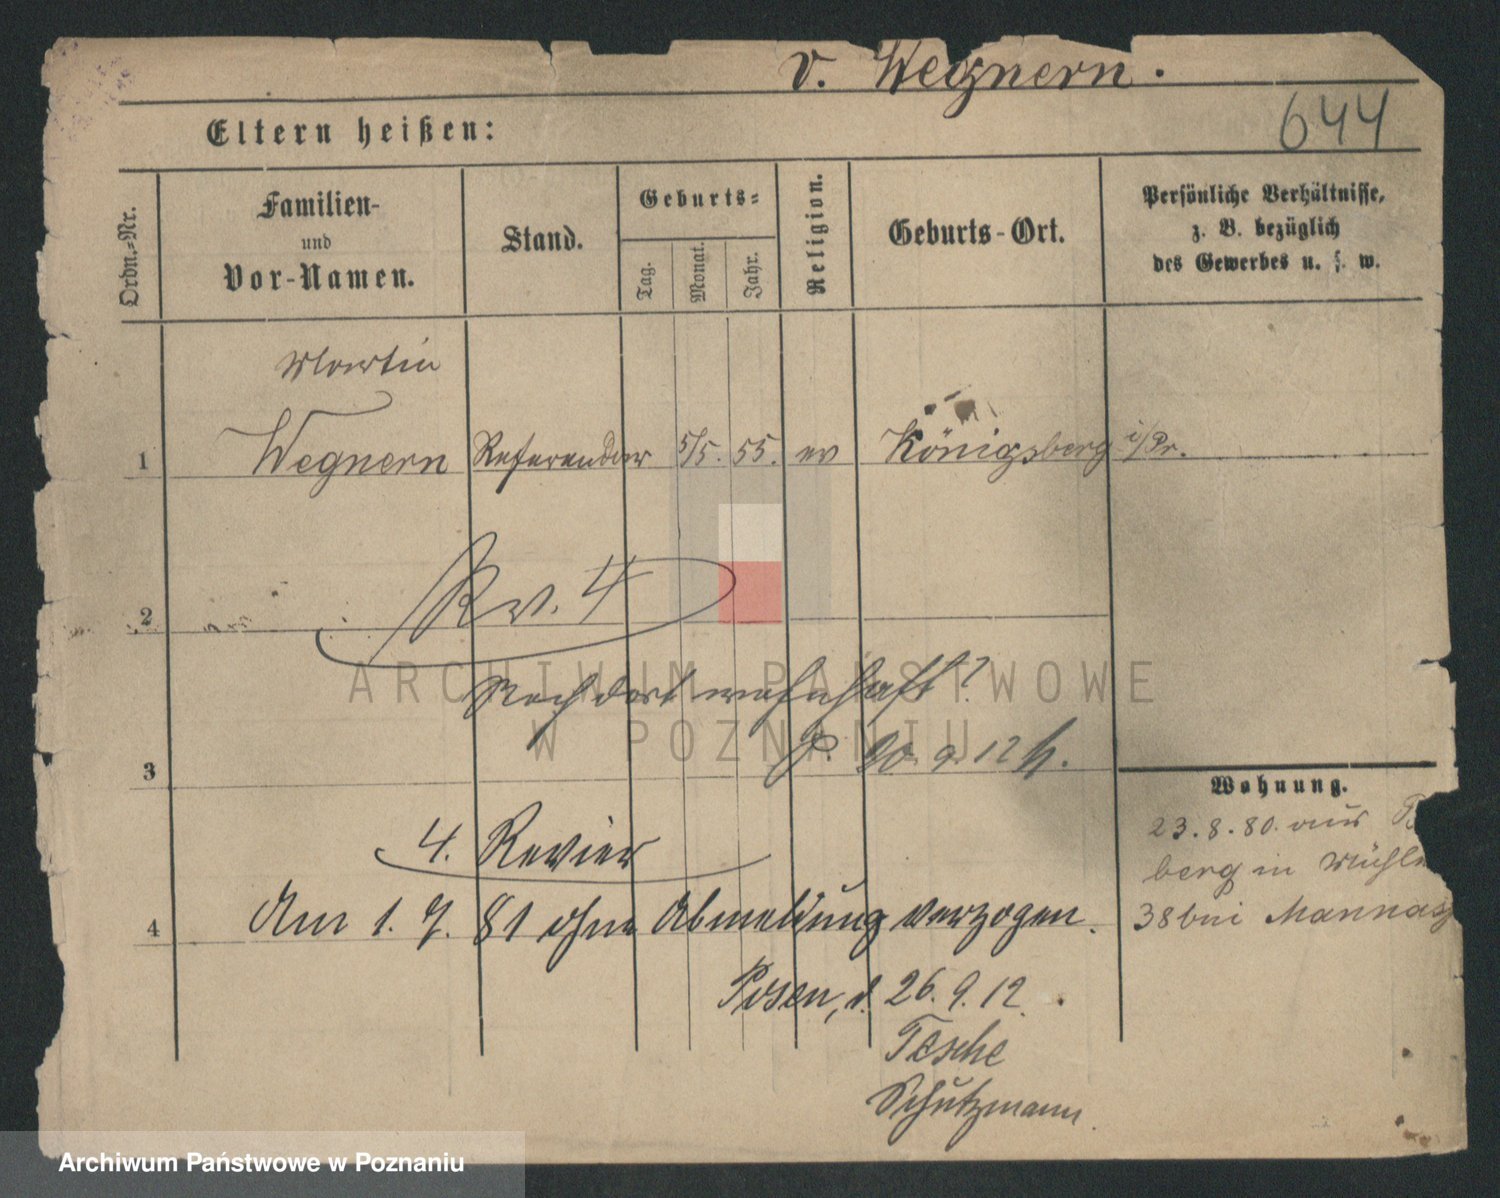 v. Wegnern.
644
Eltern heißen:
Ordn.-Nr.
Familien-
und
Vor-Namen.
Stand.
Geburts-
Tag.
Monat.
Jahr.
Religion.
Geburts-Ort.
Persönliche Verhältnisse,
z. B. bezüglich
des Gewerbes u. s. w.
Martin
1 Wegnern Referendar 5/5. 55. ev Königsberg i/Pr.
2 Rv. 4
Noch dort wohnhaft?
P. 20. 9. 12
3
Wohnung.
23. 8. 80. aus
berg in Mühl
38 bei Mannas
4. Revier
4 Am 1. 7. 81 ohne Abmeldung verzogen.
Posen, d. 26. 9. 12.
Tesche
Schutzmann.
ARCHIWUM PAŃSTWOWE
W POZNANIU
Archiwum Państwowe w Poznaniu